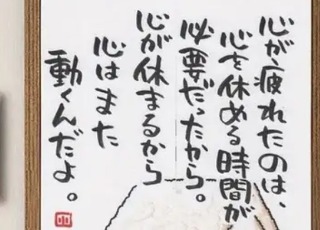 心が疲れたのは、
心を休める時間が
必要だったから。
心が休まるから
心はまた
動くんだよ。